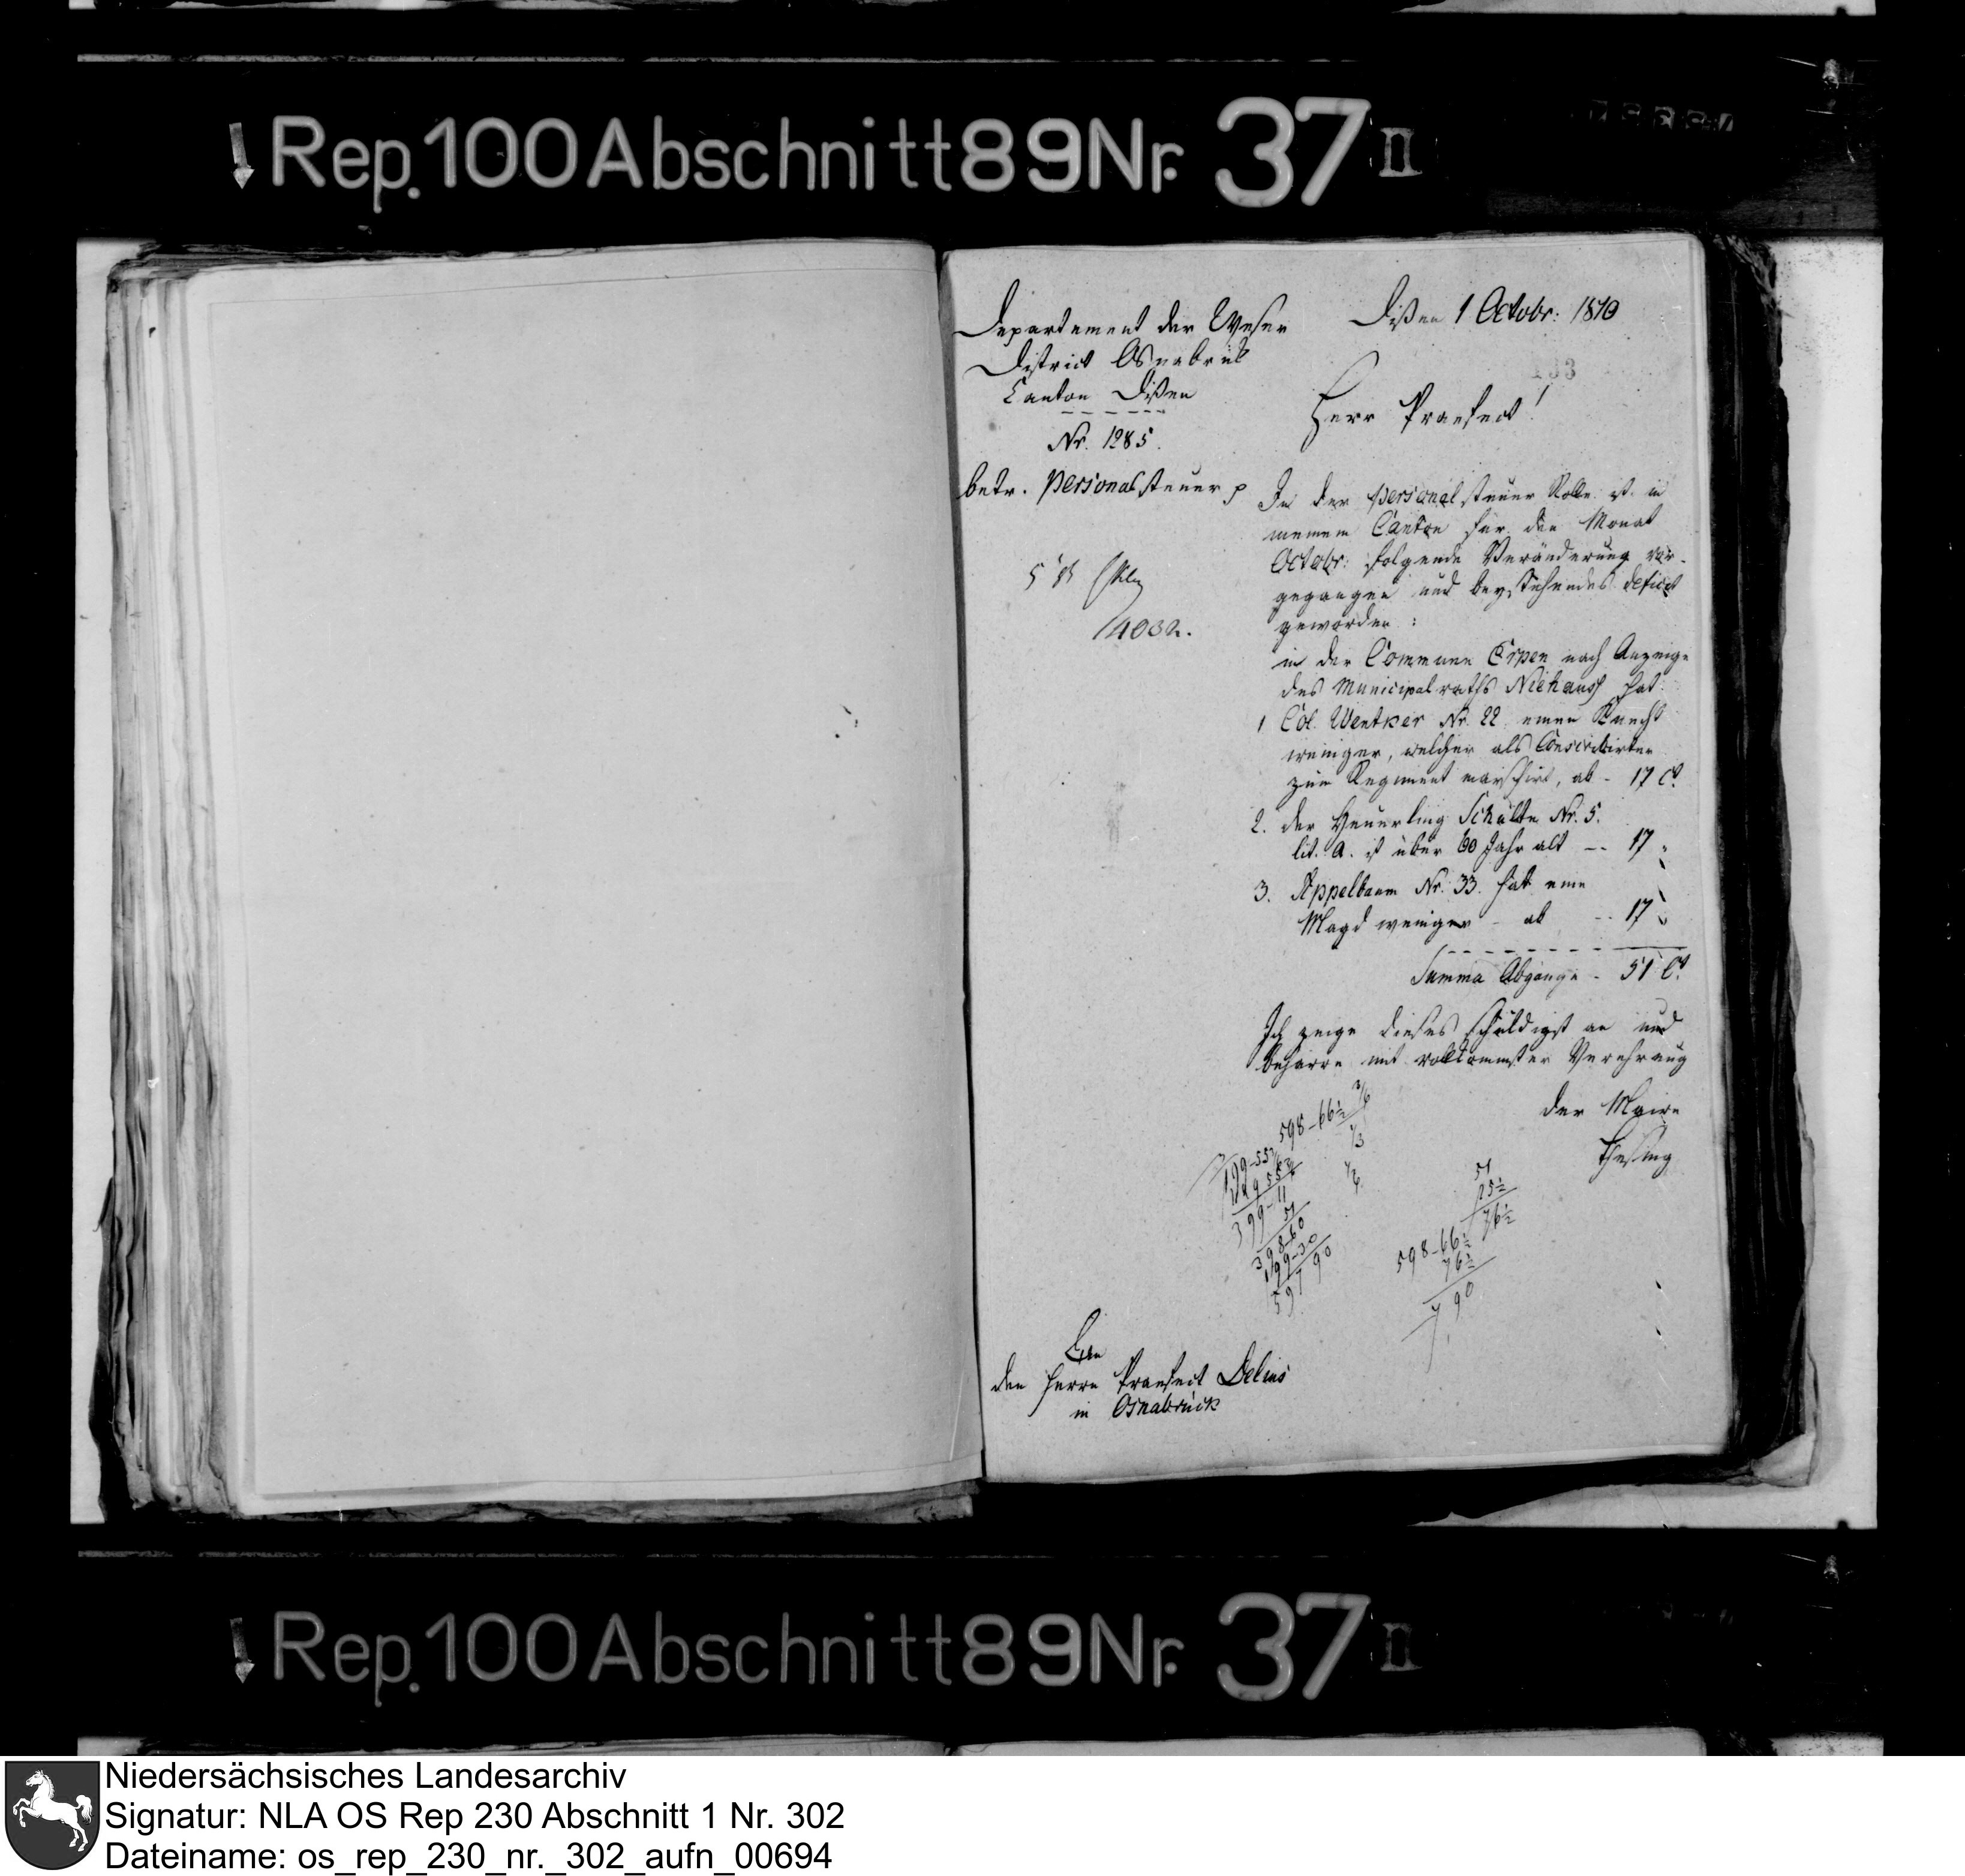 Rep. 100 Abschnitt 89 Nr. 37 II
Departement der Weser
District Osnabrük
Canton Dißen
Nr. 1285.
Dißen 1 Octobr: 1810
133
Herr Praefect!
betr. Personalsteuer p
In der Personalsteuer Rolle ist in
meinem Canton für den Monat
Octobr: folgende Veränderung vor-
gegangen und beystehendes deficit
geworden:
in der Commune Erpen nach Anzeige
des Municipalraths Niehaus hat
1 Col. Wentker Nr. 22 einen Knecht
weniger, welcher als Conscribirter
zum Regiment marschirt, ab - 17 Ct.
2. der Heuerling Schulte Nr. 5.
lit. A. ist über 60 Jahr alt -- 17 "
3. Appelbaum Nr. 33. hat eine
Magd weniger - ab -- 17 "
Summa Abgänge - 51 Ct.
Ich zeige dieses schuldigst an und
beharre mit vollkommster Verehrung
der Maire
Thesing
1403 2.
598-66½
399-11
51
398-60
199-30
597 90
51
25½
76½
598-66½
76½
7 90
An
den Herrn Praefect Delius
in Osnabrück
Rep. 100 Abschnitt 89 Nr. 37 II
Niedersächsisches Landesarchiv
Signatur: NLA OS Rep 230 Abschnitt 1 Nr. 302
Dateiname: os_rep_230_nr._302_aufn_00694